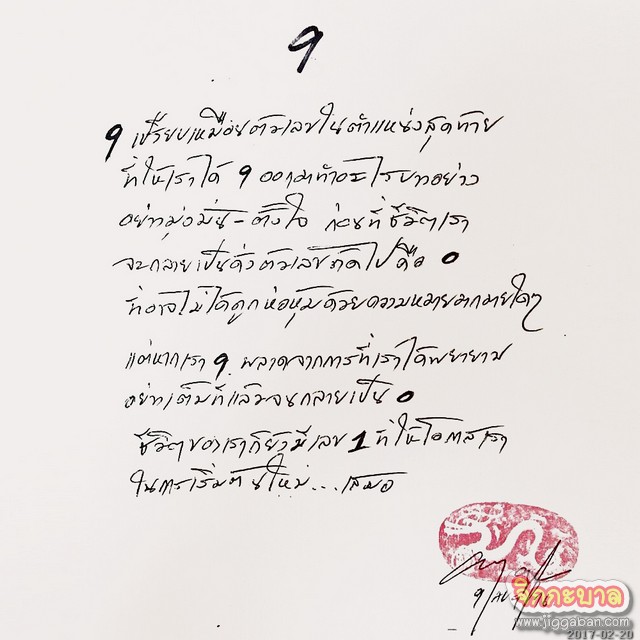 9
9 เปรียบเหมือนตัวเลขในตำแหน่งสุดท้าย
ที่ให้เราได้ 9 ออกมาทำอะไรบางอย่าง
อย่างมุ่งมั่น-ตั้งใจ ก่อนที่ชีวิตเรา
จะกลายเป็นดั่งตัวเลขถัดไปคือ 0
ที่อาจไม่ได้ถูกห่อหุ้มด้วยความหมายมากมายใดๆ
แต่หากเรา 9 พลาดจากการที่เราได้พยายาม
อย่างเต็มที่แล้วจนกลายเป็น 0
ชีวิตของเราก็ยังมีเลข 1 ที่ให้โอกาสเรา
ในการเริ่มต้นใหม่...เสมอ
จิกกะบาล
www.jiggaban.com
2017-02-20